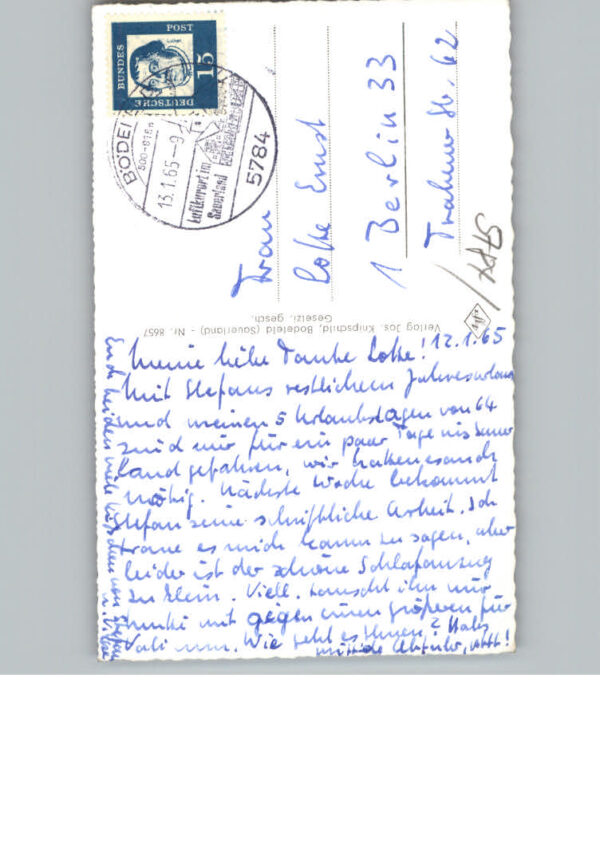 DEUTSCHE
BUNDES
POST
15
BODEFELD
500-818m
13.1.65-9
Luftkurort im
Sauerland
5784
Frau
Lotte Ernst
1 Berlin 33
Trabener Str. 62
Verlag Jos. Knipschild, Bödefeld (Sauerland) - Nr. 8657
Gesetzl. gesch.
12.1.65
Meine liebe Tante Lotte!
Mit Stefans restlichem Jahresurlaub
und meinen 5 Urlaubstagen von 64
sind wir für ein paar Tage ins Sauer
land gefahren, wir haben es auch
nötig. Nächste Woche bekommt
Stefan seine schriftliche Arbeit. Ich
traue es mich kaum zu sagen, aber
leider ist der schöne Schlafanzug
zu klein. Viell. tauscht ihn mir
mit gegen einen größeren für
Vati um. Wie geht es Ihnen?
Euch beiden viele Küßchen von Stefan